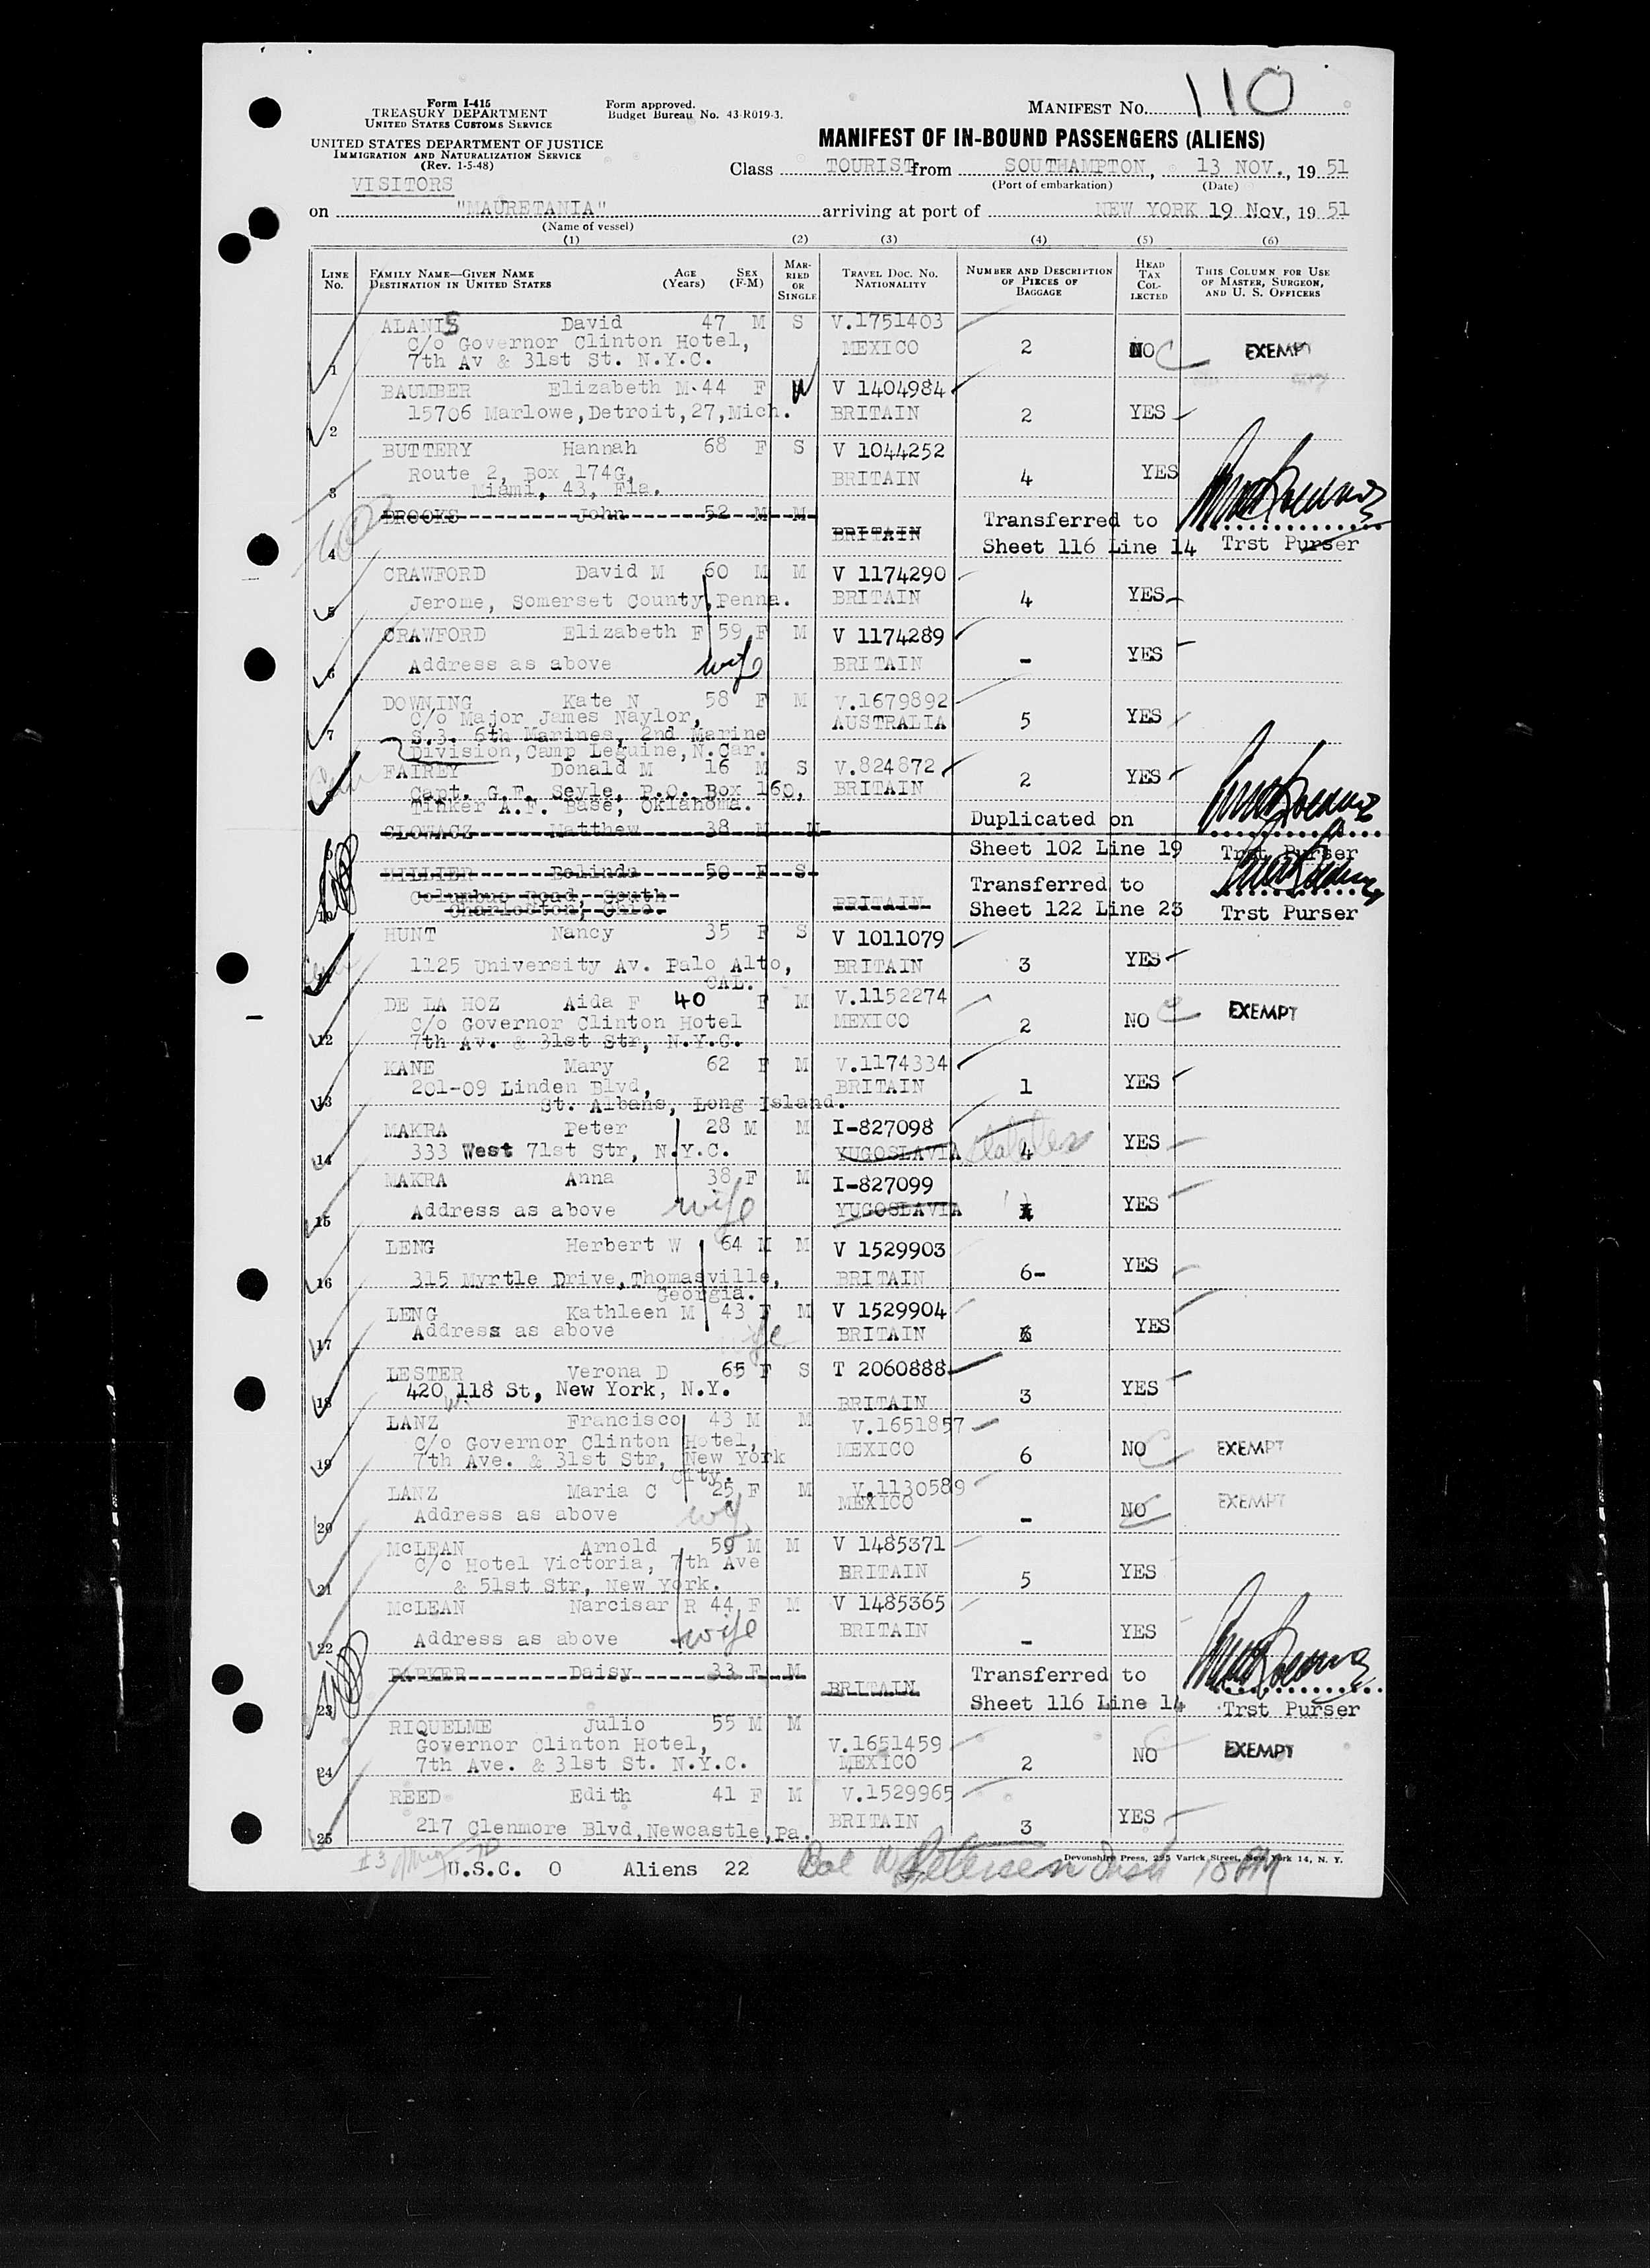 Form I-415
TREASURY DEPARTMENT
UNITED STATES CUSTOMS SERVICE
UNITED STATES DEPARTMENT OF JUSTICE
IMMIGRATION AND NATURALIZATION SERVICE
(Rev. 1-5-48)
VISITORS
Form approved.
Budget Bureau No. 43-R019-3.
MANIFEST NO. 110
MANIFEST OF IN-BOUND PASSENGERS (ALIENS)
Class TOURIST from SOUTHAMPTON, 13 NOV., 19 51
(Port of embarkation) (Date)
on "MAURETANIA" arriving at port of NEW YORK 19 Nov, 19 51
(Name of vessel)
(1) (2) (3) (4) (5) (6)
LINE NO. FAMILY NAME—GIVEN NAME DESTINATION IN UNITED STATES AGE (Years) SEX (F-M) MARRIED OR SINGLE TRAVEL DOC. NO. NATIONALITY NUMBER AND DESCRIPTION OF PIECES OF BAGGAGE HEAD TAX COLLECTED THIS COLUMN FOR USE OF MASTER, SURGEON, AND U. S. OFFICERS
ALANIS David 47 M S V.1751403
C/o Governor Clinton Hotel, MEXICO 2 NO C EXEMPT
1 7th Av & 31st St. N.Y.C.
BAUMBER Elizabeth M. 44 F W V 1404984
15706 Marlowe, Detroit, 27, Mich. BRITAIN 2 YES
2
BUTTERY Hannah 68 F S V 1044252
Route 2, Box 174G, BRITAIN 4 YES
3 Miami, 43, Fla.
BROOKS John 52 M M Transferred to
4 BRITAIN Sheet 116 Line 14 Trst Purser
CRAWFORD David M 60 M M V 1174290
5 Jerome, Somerset County, Penna. BRITAIN 4 YES
CRAWFORD Elizabeth F 59 F M V 1174289
6 Address as above wife BRITAIN - YES
DOWNING Kate N 58 F M V.1679892
C/o Major James Naylor, AUSTRALIA 5 YES
7 S.3. 6th Marines, 2nd Marine
Division, Camp Leguine, N.Car.
FAIREY Donald M 16 M S V.824872
Capt. G.F. Seyle, P.O. Box 160, BRITAIN 2 YES
Tinker A.F. Base, Oklahoma.
GLOWACZ Matthew 38 M M Duplicated on
Sheet 102 Line 19 Trst Purser
HILLIER Belinda 50 F S Transferred to
Columbus Road, South
Charleston, Ohio. BRITAIN Sheet 122 Line 23 Trst Purser
HUNT Nancy 35 F S V 1011079
1125 University Av. Palo Alto, BRITAIN 3 YES
CAL.
DE LA HOZ Aida F 40 F M V.1152274
C/o Governor Clinton Hotel MEXICO 2 NO C EXEMPT
12 7th Av. & 31st Str, N.Y.C.
KANE Mary 62 F M V.1174334
201-09 Linden Blvd, BRITAIN 1 YES
13 St. Albans, Long Island.
MAKRA Peter 28 M M I-827098
14 333 West 71st Str, N.Y.C. YUGOSLAVIA Stateless 4 YES
MAKRA Anna 38 F M I-827099
15 Address as above wife YUGOSLAVIA YES
LENG Herbert W 64 M M V 1529903
16 315 Myrtle Drive, Thomasville, BRITAIN 6- YES
Georgia.
LENG Kathleen M 43 F M V 1529904
17 Address as above wife BRITAIN YES
LESTER Verona D 65 F S T 2060888
18 420 W. 118 St, New York, N.Y. BRITAIN 3 YES
LANZ Francisco 43 M M V.1651857
C/o Governor Clinton Hotel, MEXICO 6 NO C EXEMPT
19 7th Ave. & 31st Str, New York
City.
LANZ Maria C 25 F M V.1130589
20 Address as above MEXICO - NO EXEMPT
McLEAN Arnold 59 M M V 1485371
C/o Hotel Victoria, 7th Ave BRITAIN 5 YES
21 & 51st Str, New York.
McLEAN Narcisar R 44 F M V 1485365
22 Address as above wife BRITAIN - YES
PARKER Daisy 33 F M Transferred to
23 BRITAIN Sheet 116 Line 14 Trst Purser
RIQUELME Julio 55 M M
Governor Clinton Hotel, V.1651459
24 7th Ave. & 31st St. N.Y.C. MEXICO 2 NO EXEMPT
REED Edith 41 F M V.1529965
25 217 Glenmore Blvd, Newcastle, Pa. BRITAIN 3 YES
Devonshire Press, 295 Varick Street, New York 14, N. Y.
U.S.C. 0 Aliens 22